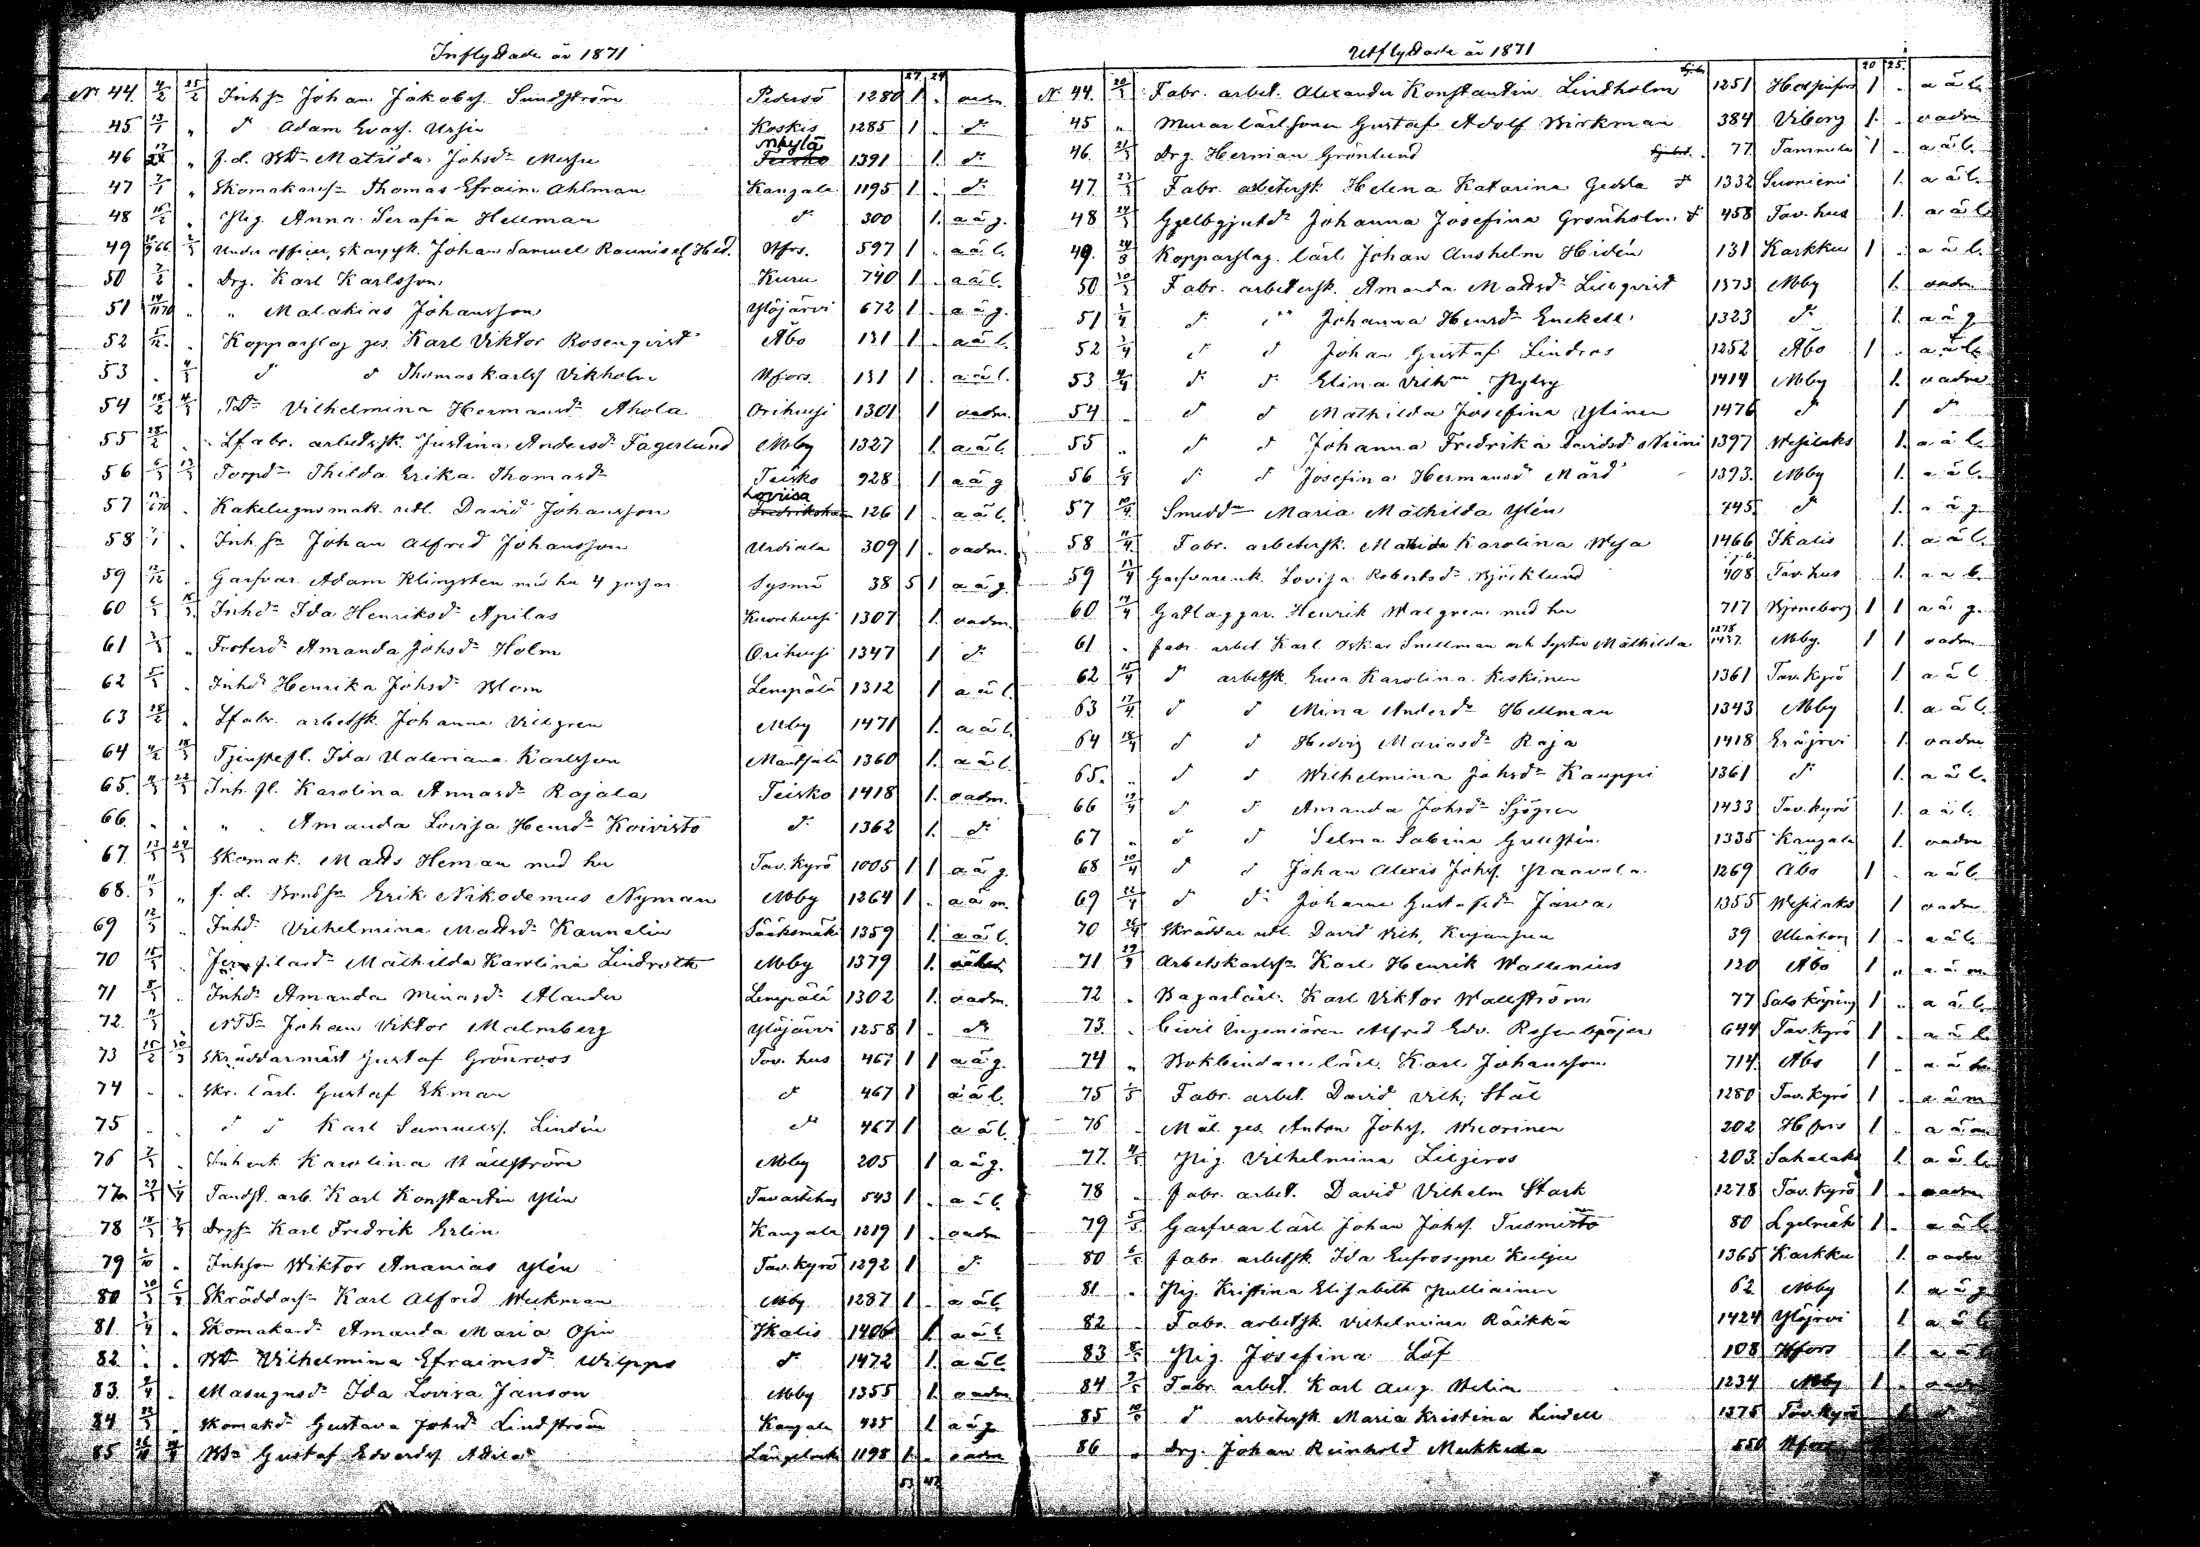 Inflyttade år 1871
27. 24.
No 44. 4/2 25/2 Inhsn Johan Jakobss. Sundström Pedersö 1280 1 . oadm.
45 13/1 " do Adam Evass. Ursin Koskis 1285 1 . do
46 " f.d. Matilda Johsdr Messu Nkylä Teisko 1391 1. do
47 7/1 " Skomakaresn Thomas Efraim Ahlman Kangala 1195 1 . do
48 15/2 " Pig. Anna Serafia Hellman do 300 1. a ä g.
49 2/3 Under officer, skarpsk. Johan Samuel Hfors. 597 1 . a ä l.
50 7/2 . Drg. Karl Karlsson Kuru 740 1 . a ä l.
51 14/1170 . " Malakias Johansson Ylöjärvi 672 1 . a ä g.
52 5/12 . Kopparslag. ges. Karl Viktor Rosenqvist Åbo 131 1 . a ä l.
53 . 4/3 do do Thomas Karlss Vikholm Hfors. 131 1 . a ä l.
54 18/2 4/3 Vilhelmina Hermansdr Ahola Orihvesi 1301 1 oadm.
55 28/2 . Lfabr. arbetssk. Justina Andersdr Fagerlund Mby 1327 1. a ä l.
56 6/3 13/3 Torpdr Thilda Erika Thomasdr Teisko 928 1 a ä g
57 . Kakelugnsmak. utl. David Johansson Loviisa Fredrikshamn 126 1 . a ä l.
58 7/1 . Inh. sn Johan Alfred Johansson Urdiala 309 1 . oadm.
59 12/12 . Garfvar. Adam Klingsten med hu 4 Sysmä 38 5 1 a ä g.
60 6/3 15/3 Inhdr Ida Henriksdr Apilas Kuorehvesi 1307 1. oadm.
61 3/3 " Amanda Johsdr Holm Orihvesi 1347 1 do
62 5/3 . Inhdr Henrika Johsdr Blom Lempälä 1312 1 a ä l.
63 18/2 " Lfabr. arbetssk. Johanna Villgren Mby 1471 1. a ä l.
64 4/2 18/3 Tjenstefl. Ida Valeriana Karlsson Mäntsälä 1360 1. a ä l.
65. 4/3 22/3 Inh. fl. Karolina Annasdr Rajala Teisko 1418 1. oadm.
66. " . " " Amanda Lovisa Henrdr Koivisto do 1362 1. do
67. 13/3 24/3 Skomak. Matts Heman med hu Tav. Kyrö 1005 1 1 a ä g.
68. 11/3 " f. d. Erik Nikodemus Nyman Mby 1264 1 . a ä m.
69 12/3 . Inhdr Vilhelmina Mattsdr Kannelin Sääksmäki 1359 1. a ä l.
70 15/3 . Mathilda Karolina Lindroth Mby 1379 1.
71 8/3 . Inhdr Amanda Minasdr Alander Lempälä 1302 1. oadm.
72. 11/3 " Johan Viktor Malmberg Ylöjärvi 1258 1 . do
73 15/2 30/3 Skräddarmäst Gustaf Grönroos Tav. hus 467 1 1 a ä g.
74 . . Skr. lärl. Gustaf Ekman do 467 1 a ä l.
75 . . do do Karl Samuelss. Lindén do 467 1 a ä l.
76 2/3 . Inhenk Karolina Wällström Mby 205 1 a ä g.
77 29/3 1/4 Tandst. arb. Karl Konstantin Ylén Tavastehus 543 1 . a ä l.
78 18/3 3/4 Drgsn Karl Fredrik Erlin Kangala 1219 1 . oadm
79 2/10 . Inhson Wiktor Ananias Ylén Tav. Kyrö 1292 1 do
80 30/3 6/4 Skräddarsn Karl Alfred Weckman Mby 1287 1 . a ä l.
81. 1/4 " Skomakaredr Amanda Maria Osin Ikalis 1406 1. a ä l
82 . . Vilhelmina Efraimsdr Wilppo do 1472 1. a ä l
83. 3/4 . Masugnsdr Ida Lovisa Janson Mby 1355 1. oadm
84. 22/3 . Skomakdr Gustava Johsdr Lindström Kangala 425 1 a ä g
85 Gustaf Edvardss Attila Längelmäki 1198 1. . oadm
53 42

Utflyttade år 1871
20 25.
No 44. 20/3 Fabr. arbet. Alexander Konstantin Lindholm 1251 Helsinfors 1 . a ä l.
45 " Murarlärlsonen Gustaf Adolf Birkman 384 Viborg 1. . oadm
46. 21/3 Drg. Herman Grönlund 77 Tammela 1 . a ä l.
47. 23/3 Fabr. arbetersk. Helena Katarina Gedda do 1332 Suoniemi 1. a ä l.
48 24/3 Gjelbgjutdr Johanna Josefina Grönholm do 458 Tav. hus 1. a ä l.
49. 24/3 Kopparslag. lärl. Johan Anshelm Hidén 131 Karkku 1 . a ä l.
50 30/3 Fabr. arbetersk. Amanda Mattsdr Lillqvist 1373 Mby 1. oadm.
51 1/4 do " Johanna Henrdr Enckell 1323 do 1. a ä g
52 3/4 do do Johan Gustaf Lindros 1252 Åbo 1 . a ä l.
53 4/4 do do Elina Vilhma Nyby 1414 Mby 1. oadm
54 . do do Mathilda Josefina Ylinen 1476 do 1 do
55 " do do Johanna Fredrika Davidsdr Niini 1397 Vesilaks 1. a ä l.
56 6/4 do do Josefina Hermansdr Mård 1393. Mby 1. a ä l.
57 10/4 Smeddr Maria Mathilda Ylén 745. do 1. a ä g.
58 11/4 Fabr. arbetersk. Matilda Karolina Wesa 1466 Ikalis 1. a ä l.
59 13/4 Garfvarenk. Lovisa Robertsdr Björklund 408 Tav. hus 1. a ä l.
60 14/4 Gatläggar. Henrik Walgren med hu 717 Bjerneborg 1 1 a ä g.
61 . Fabr. arbet. Karl Oskar Snellman och Syster Mathilda 1278 1437. Mby. 1 1 oadm
62 15/4 do arbetsk. Eva Karolina Keskinen 1361 Tav. Kyrö 1 a ä l
63 17/4 do do Mina Andersdr Hellman 1343 Mby 1. a ä l.
64 18/4 do do Hedvig Mariasdr Raja 1418 Eräjervi 1. oadm
65. " do do Wilhelmina Johsdr Kauppi 1361 do 1. a ä l.
66 19/4 do do Amanda Johsdr Sjögren 1433 Tav. Kyrö 1. a ä l.
67 " do do Selma Sabina Gullstén. 1335 Kangala 1. oadm
68 20/4 do do Johan Alexis Johss. Paavola. 1269 Åbo 1 . a ä l.
69 22/4 do do Johanna Gustafsdr Järva 1355 Vesilaks 1 oadm
70 26/4 Skräddar utl. David Vilh. Kujanpää 39 Uleåborg 1 . a ä l.
71 29/4 Arbetskarlssn Karl Henrik Wallenius 120 Åbo 1 " a ä m.
72 . Bagarlärl. Karl Viktor Wallström 77 Salo köping 1 . a ä l.
73. . Civil Ingeniören Alfred Edv. 644 Tav. Kyrö 1 . a ä l.
74 " Bokbindare lärl. Karl Johansson 714. Åbo 1 . a ä
75 1/5 Fabr. arbet. David Vilh. Stål 1280 Tav. Kyrö 1 . a ä m
76 . Mål. ges. Anton Johss. Wuorinen 202 Hfors 1 . a ä m
77. 4/5 Pig. Vilhelmina Liljeros 203. Sahalaks 1. a ä l.
78 . Fabr. arbet. David Vilhelm Stark 1278 Tav. Kyrö 1 . oadm
79 5/5 Garfvar lärl. Johan Johss. Tusmisto 80 Lgelmäki 1 . a ä l
80 6/5 Fabr. arbetsk. Ida Eufrosyne Kulju 1365 Karkku 1. oadm
81 . Pig. Kristina Elisabeth Pulliainen 62 Mby 1. a ä g
82 . Fabr. arbetsk. Vilhelmina Räikkä 1424 Ylöjrvi 1. a ä l
83 8/5 Pig. Josefina Löf 108 Hfors 1. a ä
84 9/5 Fabr. arbet. Karl Aug. Melin 1234 Mby 1 . oadm
85 10/5 do arbetersk Maria Kristina Lindell 1375 Tav. Kyrö 1 do
86 " Drg. Johan Reinhold Mukkula 550 Hfors